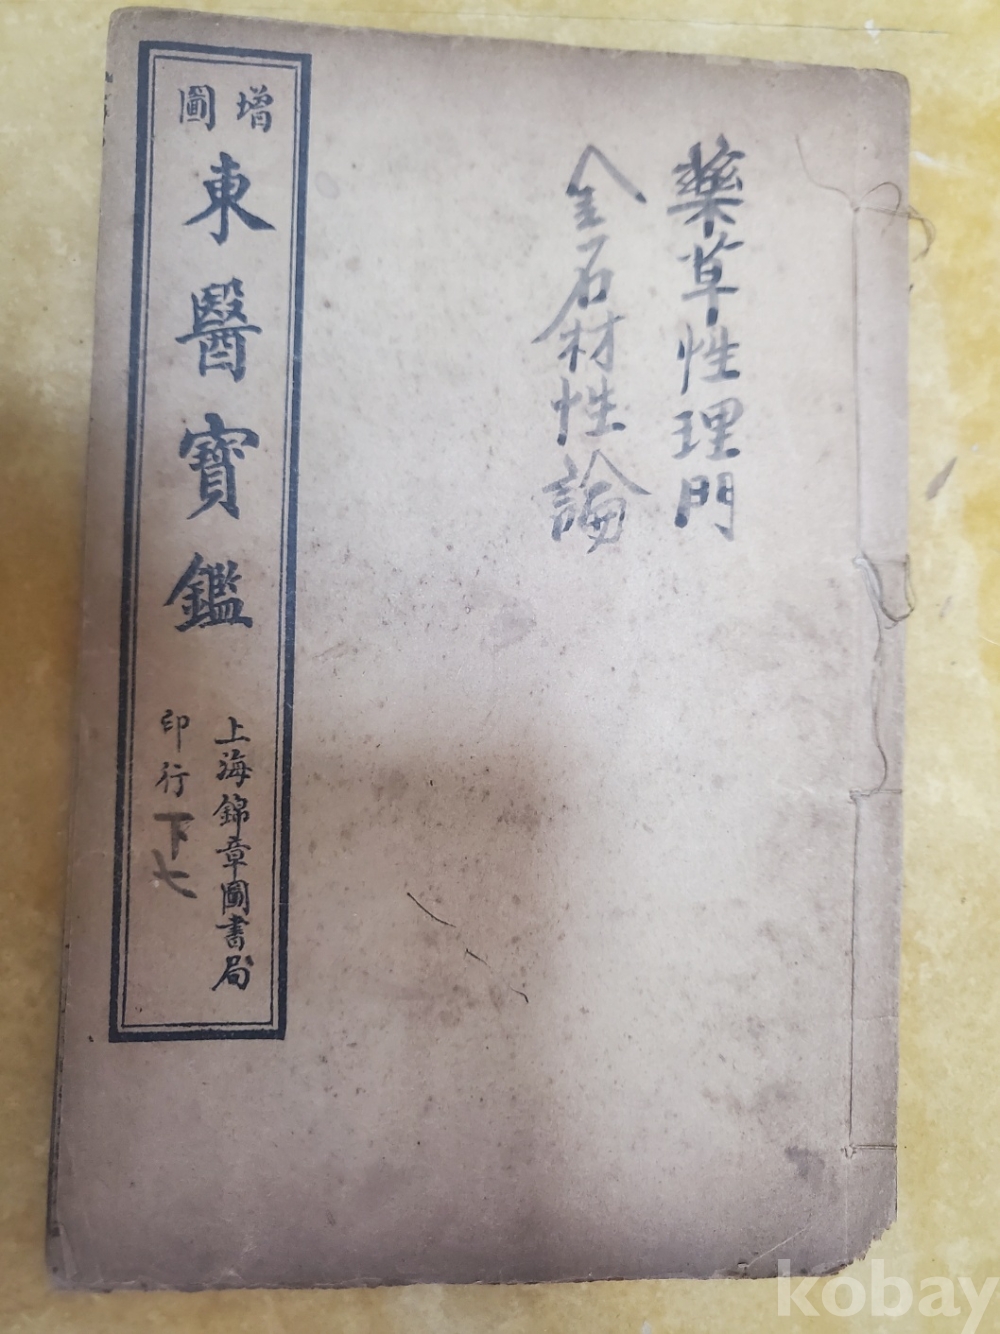 藥草性理門
金石材性論
增圖
東醫寶鑑
上海錦章圖書局
印行
下七
kobay